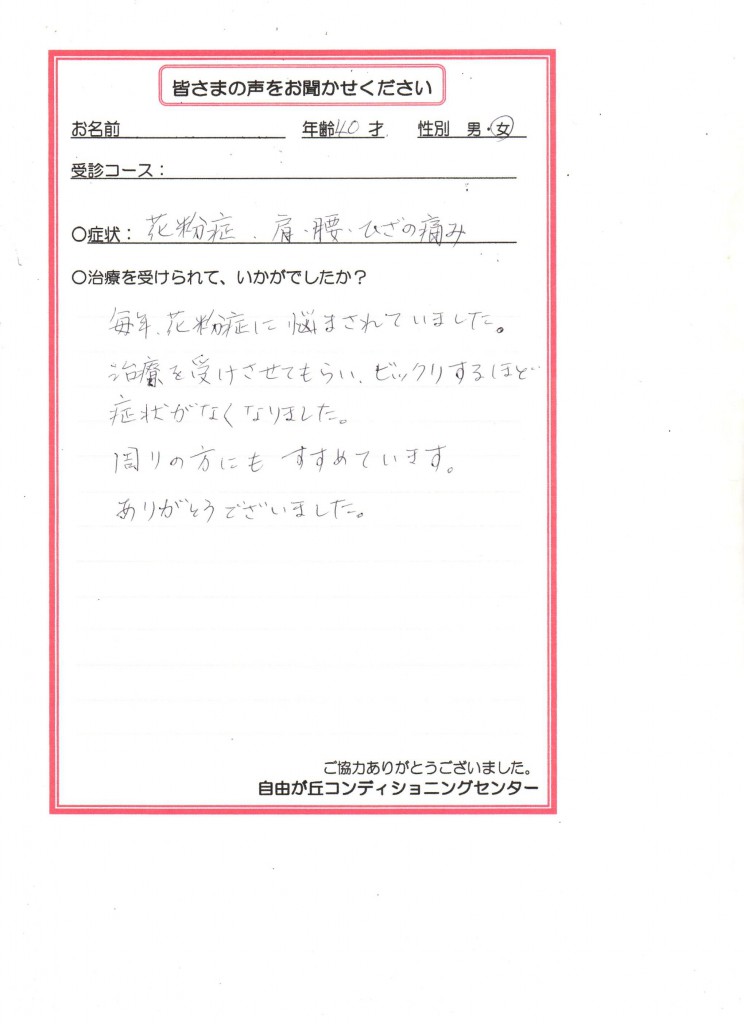 皆さまの声をお聞かせください
お名前 年齢40才 性別 男・女
受診コース：
○症状： 花粉症、肩・腰・ひざの痛み
○治療を受けられて、いかがでしたか？
毎年、花粉症に悩まされていました。
治療を受けさせてもらい、ビックリするほど
症状がなくなりました。
周りの方にもすすめています。
ありがとうございました。
ご協力ありがとうございました。
自由が丘コンディショニングセンター